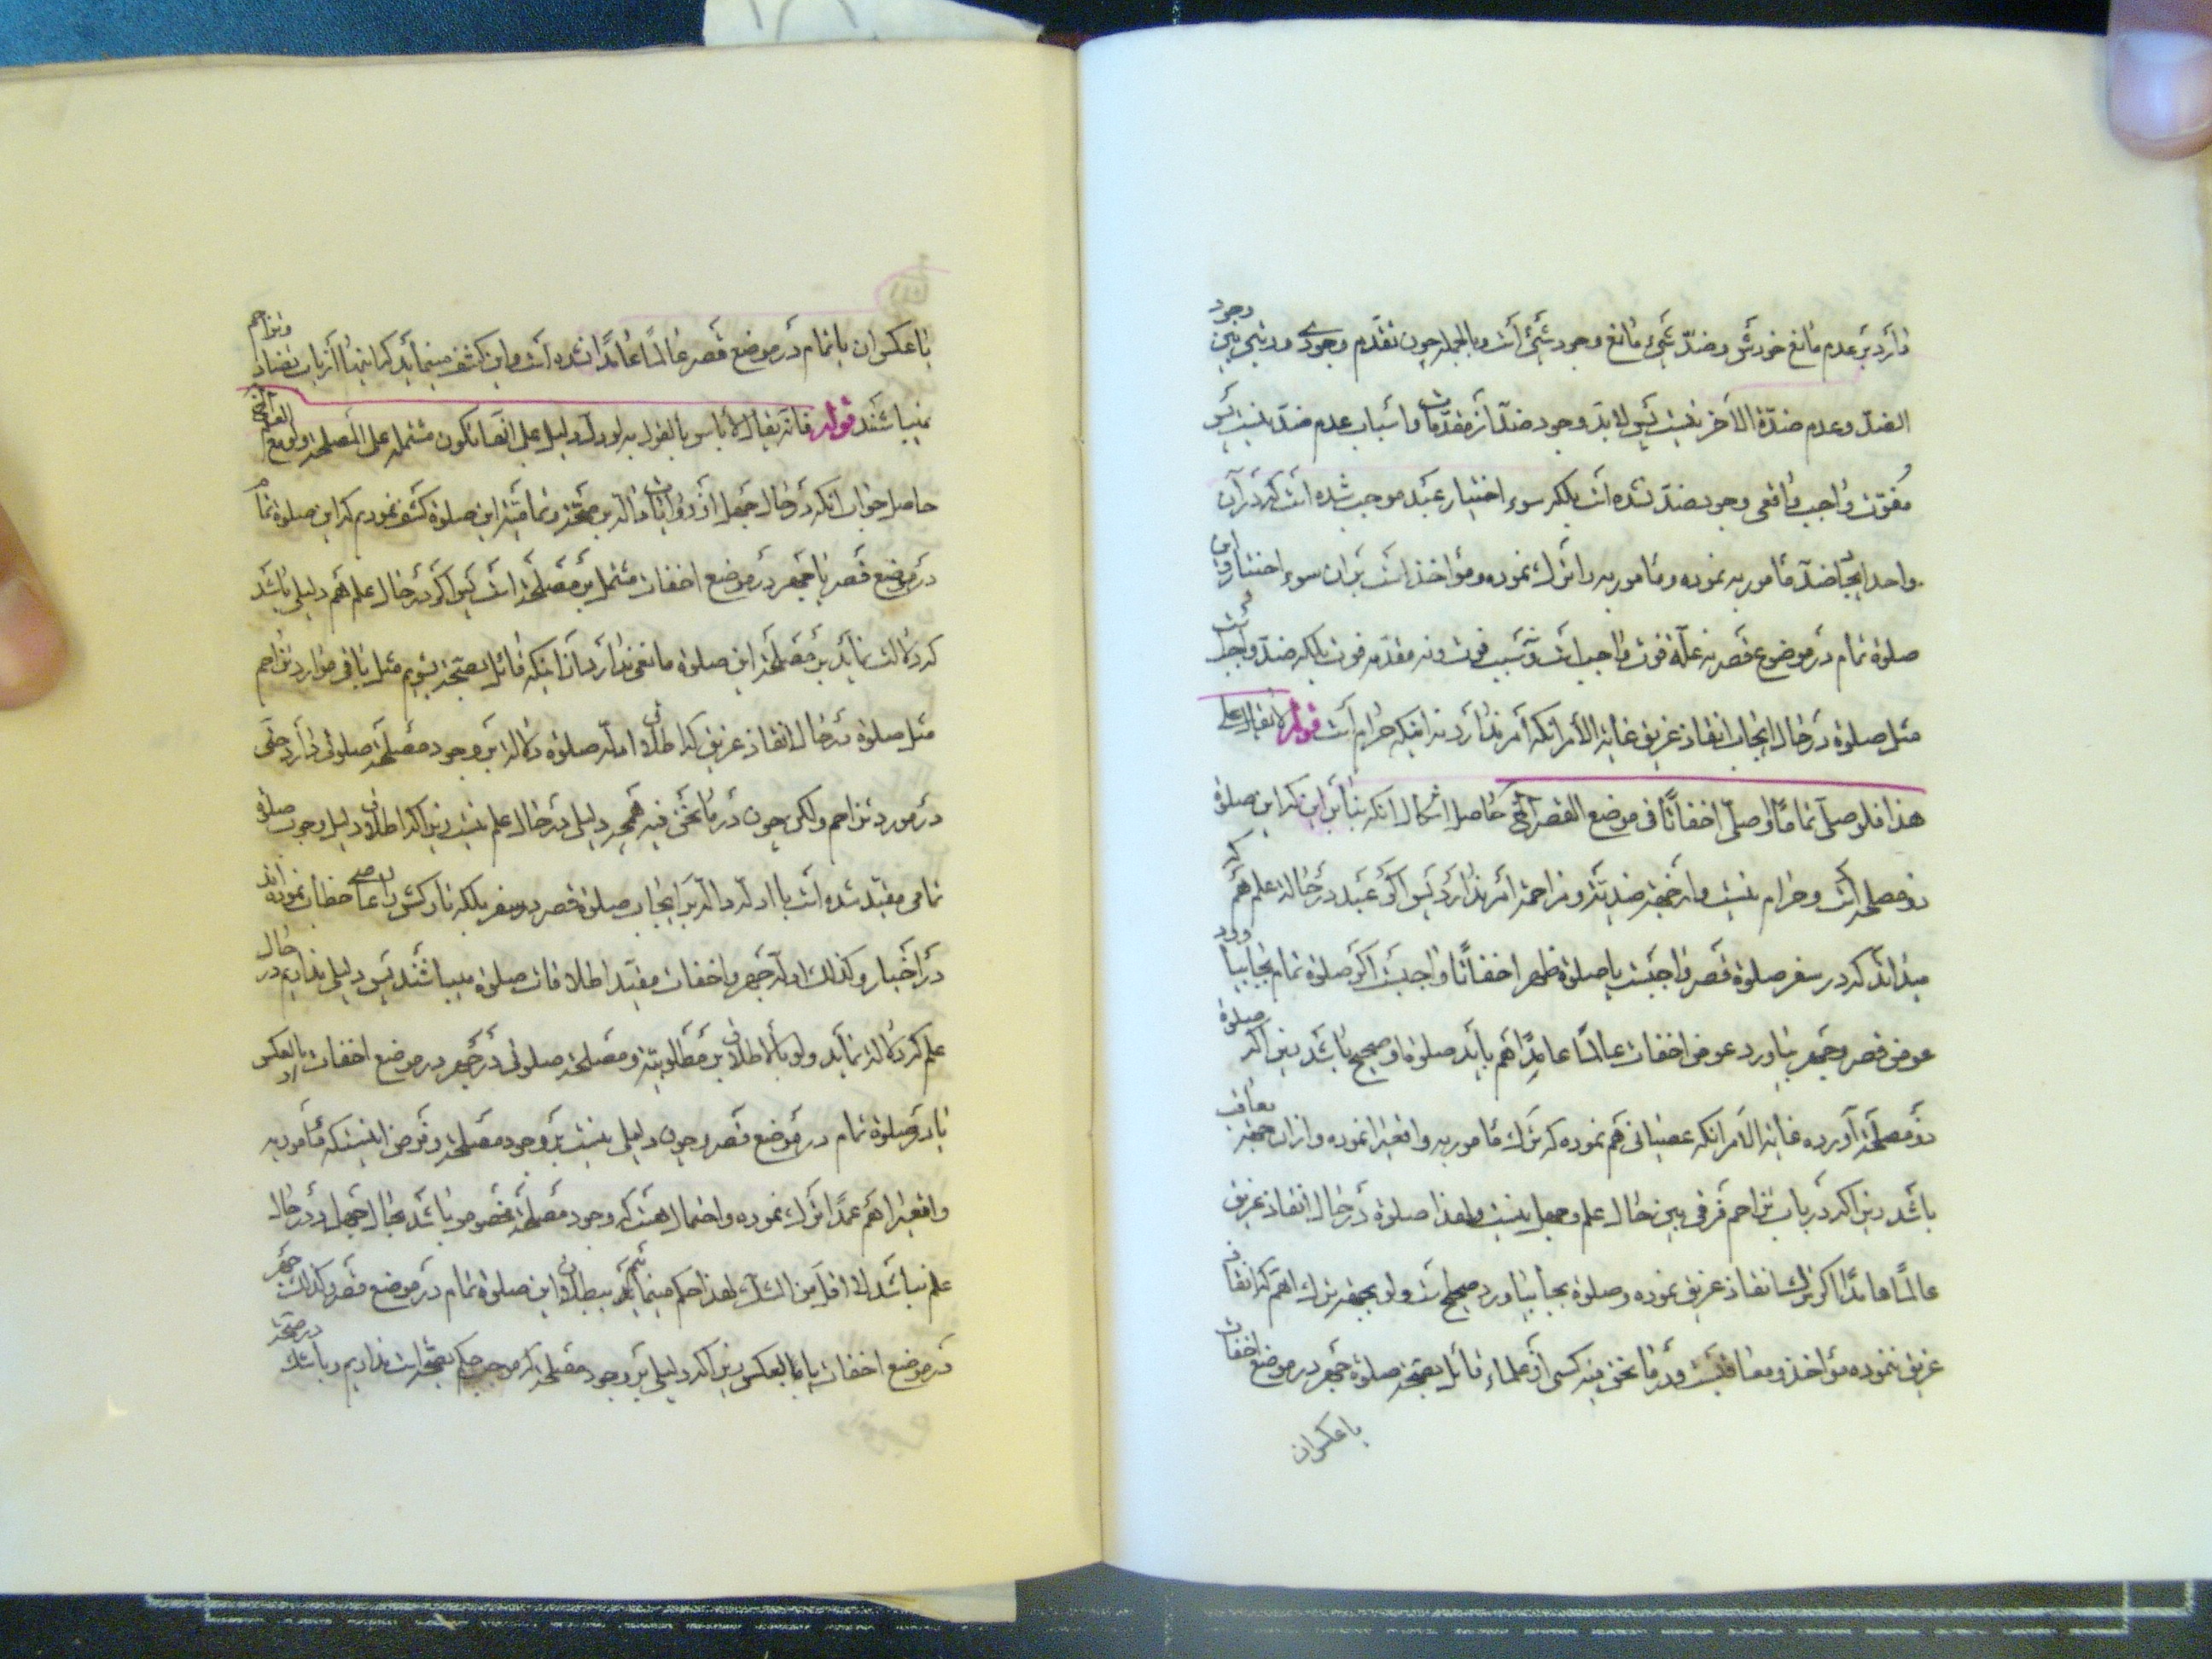 دارد بر عدم مانع خودش و ضدّ شیئ مانع وجود شیئ است و بالجمله چون تقدم وجودی در بین وجود
الضدّ و عدم ضدّه الآخر نیست پس لابد وجود ضدّ از مقدّمات و اسباب عدم ضدّ نیست پس
مفوّت واجب واقعی وجود ضد نشده است بلکه سوء اختیار عبد موجب شده است که در آن
واحد ایجاد ضدّ مأمور به نموده و مأمور به را ترک نموده و مؤاخذ است بر ان سوء اختیار و این
صلوة تمام در موضوع قصر نه علّة فوت واجب است و نه سبب فوت و نه مقدمه فوت بلکه ضدّ واجب است
مثل صلوة در حال ایجاب انقاذ غریق غایة الأمر انکه امر ندارد نه اینکه حرام است قوله لا یقال علی
هذا فلو صلّی تماما او صلّی اخفاتًا فی موضع القصر الخ حاصل اشکال انکه بنا بر این که این صلوة
ذو مصلحة است و حرام نیست و از جهة ضدیّة و مزاحمة امر ندارد پس اگر عبد در حالة علم هم که
میداند که در سفر صلوة قصر واجبست یا صلوة ظهر اخفاتًا واجبست اگر صلوة تمام بجا بیاورد
عوض قصر و جهر بیاورد عوض اخفات عالمًا عامدًا هم باید صلوة او صحیح باشد زیرا که صلوة
ذو مصلحة آورده غایة الأمر انکه عصیانی هم نموده که ترک مأمور به واقعیرا نموده و از ان جهة معاقب
باشد زیرا که در باب تزاحم فرقی بین حال علم و جهل نیست و لهذا صلوة در حال انقاذ غریق
عالمًا عامدًا اگر ترک انقاذ غریق نموده و صلوة بجا بیاورد صحیح است ولو بجهة ترک اهمّ که انقاذ
غریق ننموده مؤاخذ و معاقبست و در ما نحن فیه کسی از علماء قائل بصحّة صلوة جهر در موضع اخفات
یا عکس ان
یا عکس ان یا تمام در موضع قصر عالمًا عامدًا نشده است و این کشف مینماید که اینها از باب تضاد و تزاحم
نمیباشند قوله فانّه یقال لا بأس بالقول به لو دل دلیل علی انّها تکون مشتملة علی المصلحة ولو مع العلم الخ
حاصل جواب انکه در حال جهل از روایات دالّه بر صحّة و تمامیّة این صلوة کشف نمودیم که این صلوة تمام
در موضع قصر یا جهر در موضع اخفات مشتمل بر مصلحة است پس اگر در حال علم هم دلیلی باشد
که دلالت نماید بر مصلحة این صلوة مانعی ندارد از اینکه قائل بصحّة بشویم مثل باقی موارد تزاحم
مثل صلوة در حال انقاذ غریق که اطلاق امله صلوة دلالة بر وجود مصلحة صلوتی دارد حتّی
در مورد تزاحم ولکن چون در ما نحن فیه همچه دلیلی در حال علم نیست زیرا که اطلاق دلیل وجوب صلوة
تمامی مقیّد شده است با ادلّه دالّه بر ایجاب صلوة قصر در سفر بلکه تارکش را عاصی خطاب نموده اند
در اخبار و کذلک ادلّه جهر و اخفات مقیّد اطلاقات صلوة میباشند پس دلیلی نداریم در حال
علم که دلالة نماید ولو بالاطلاق بر مطلوبیّة و مصلحة صلوتی در جهر در موضع اخفات او بالعکس
یا در صلوة تمام در موضع قصر و چون دلیل نیست بر وجود مصلحة و فرض اینست که مأمور به
واقعیرا هم عمدًا ترک نموده و احتمال هست که وجود مصلحة مخصوص باشد بحال جهل و در حال
علم نباشد لا اقل من الشک لهذا حکم مینمائیم ببطلان این صلوة تمام در موضع قصر و کذلک جهر
در موضع اخفات یا بالعکس زیرا که دلیلی بر وجود مصلحة که موجب حکم بصحّة است نداریم و با شک در صحّة